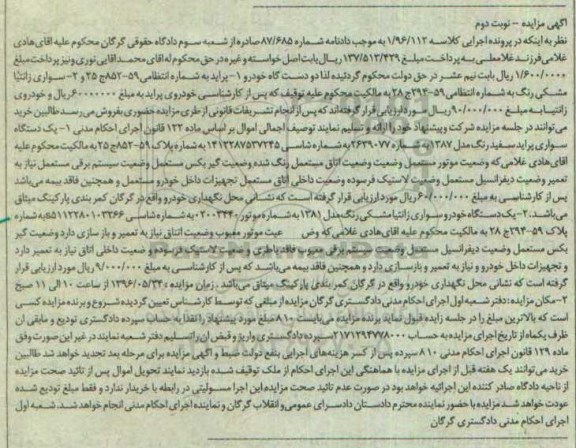 آگهی مزایده – نوبت دوم
نظر به اینکه در پرونده اجرایی کلاسه ۱/۹۶/۱۱۲ به موجب دادنامه شماره ۸۷/۶۸۵ صادره از شعبه سوم دادگاه حقوقی گرگان محکوم علیه آقای هادی
غلامی فرزند غلامعلی به پرداخت مبلغ ۱۳۷/۵۱۳/۴۳۹ ریال بابت اصل خواسته و غیره در حق محکوم له آقای محمد آقایی نوری و نیز پرداخت مبلغ
۱/۶۰۰/۰۰۰ ریال بابت نیم عشر در حق دولت محکوم گردیده لذا دو دست گاه خودرو ۱– پراید به شماره انتظامی ۵۹–۸۵۲ج ۲۵ و ۲– سواری زانتیا
مشکی رنگ به شماره انتظامی ۵۹–۲۹۴ج ۲۸ به مالکیت محکوم علیه توقیف که پس از کارشناسی خودروی پراید به مبلغ ۶۰۰۰۰۰۰۰ ریال و خودروی
زانتیا به مبلغ ۹۰/۰۰۰/۰۰۰ ریال مورد ارزیابی قرار گرفته اند که پس از انجام تشریفات قانونی از طری مزایده حضوری بفروش می رسد طالبین خرید
می توانند در جلسه مزایده شرکت و پیشنهاد خود را ارائه و تسلیم نمایند توصیف اجمالی اموال بر اساس ماده ۱۲۲ قانون اجرای احکام مدنی ۱– یک دستگاه
سواری پراید سفید رنگ مدل ۱۳۸۷ شماره ۲۶۳۹۰۷۷ به شماره شاسی ۱۴۱۲۲۸۷۵۳۷۲۴۵ به شماره پلاک ۵۹–۸۵۲ج ۲۵ به مالکیت محکوم علیه
آقای هادی غلامی که وضعیت موتور مستعمل وضعیت وضعیت اتاق مستعمل رنگ شده وضعیت گیر بکس مستعمل وضعیت سیستم برقی مستعمل نیاز به
تعمیر وضعیت دیفرانسیل مستعمل وضعیت لاستیک فرسوده وضعیت داخلی اتاق مستعمل تجهیزات داخل خودرو مستعمل و همچنین فاقد بیمه می باشد
پس از کارشناسی به مبلغ ۶۰/۰۰۰/۰۰۰ ریال مورد ارزیابی قرار گرفته است که نشانی محل نگهداری خودرو واقع در گرگان کمر بندی پارکینگ میثاق
می باشد. ۲– یک دستگاه خودرو سواری زانتیا مشکی رنگ مدل ۱۳۸۱ به شماره موتور ۰۲۰۰۳۴۴۰ به شماره شاسی S۵۱۱۲۲۸۰۱۰۳۲۶۶ به شماره
پلاک ۵۹–۲۹۴ج ۲۸ به مالکیت محکوم علیه آقای هادی غلامی که وض عیت موتور معیوب وضعیت اتاق نیاز به تعمیر و باز سازی دارد وضعیت گیر
بکس مستعمل وضعیت دیفرانسیل مستعمل وضعیت سیستم برقی معیوب فاقد باطری وضعیت لاستیک فرسوده وضعیت داخلی اتاق نیاز به تعمیر دارد
و تجهیزات داخل خودرو و نیاز به تعمیر و بازسازی دارد و همچنین فاقد بیمه می باشد که پس از کارشناسی به مبلغ ۹/۰۰۰/۰۰۰ ریال مورد ارزیابی قرار
گرفته است که نشانی محل نگهداری خودرو واقع در گرگان کمربندی پارکینگ میثاق می باشد. زمان مزایده: ۱۳۹۶/۰۵/۲۴ از ساعت ۱۰ الی ۱۱ صبح
۲– مکان مزایده: دفتر شعبه اول اجرای احکام مدنی دادگستری گرگان مزایده از مبلغی که توسط کارشناس تعیین گردیده شروع و برنده مزایده کسی
است که بالاترین مبلغ را در جلسه زایده قبول نماید برنده مزایده می بایست ۱۰٪ مبلغ مورد پیشنهاد را نقدا به حساب سپرده دادگستری تودیع و مابقی ان
ظرف یکماه از تاریخ اجرای مزایده به حساب ۲۱۷۱۲۹۴۷۷۸۰۰۰ سپرده دادگستری واریز و قبض ان را تسلیم دفتر شعبه نمایند در غیر این صورت وفق
ماده ۱۲۹ قانون اجرای احکام مدنی ۱۰٪ سپرده پس از کسر هزینه های اجرایی بنفع دولت ضبط و آگهی مزایده برای مرحله بعد تجدید خواهد شد طالبین
خرید می توانند یک هفته قبل از اجرای مزایده با هماهنگی این اجرای احکام از ملک توقیف شده بازدید نمایند تحویل اموال پس از تائید صحت مزایده
از ناحیه دادگاه صادر کننده این اجرائیه خواهد بود در صورت عدم تائید صحت مزایده این اجرا مسولیتی در رابطه با خریدار ندارد و فقط مبلغ تودیع شده
عودت خواهد شد مزایده با حضور نماینده محترم دادستان دادسرای عمومی و انقلاب گرگان و نماینده اجرای احکام مدنی انجام خواهد شد. شعبه اول
اجرای احکام مدنی دادگستری گرگان